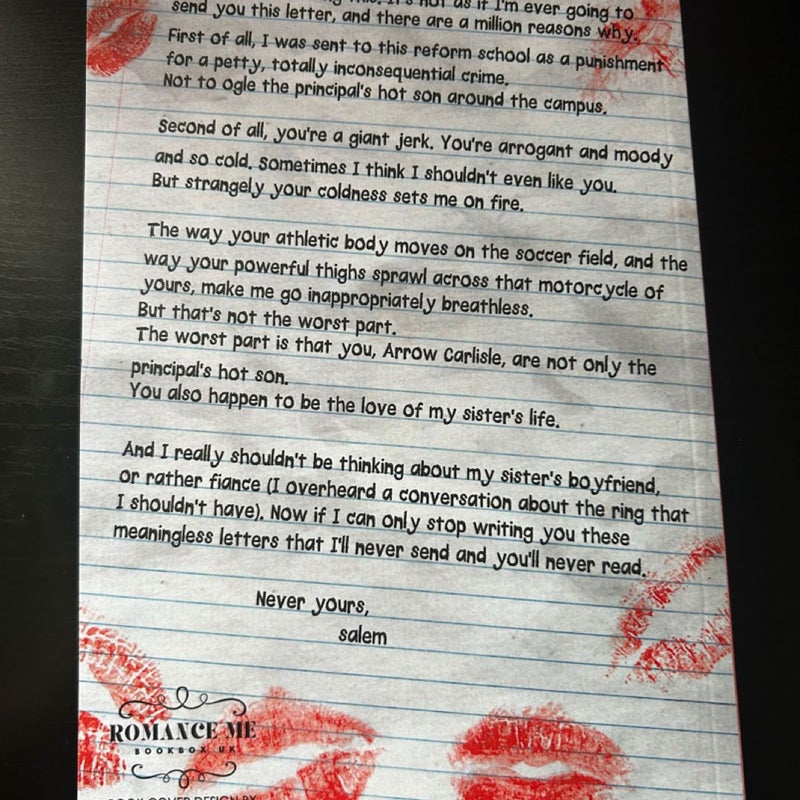 not as if I'm ever going to
send you this letter, and there are a million reasons why.
First of all, I was sent to this reform school as a punishment
for a petty, totally inconsequential crime.
Not to ogle the principal's hot son around the campus.
Second of all, you're a giant jerk. You're arrogant and moody
and so cold. Sometimes I think I shouldn't even like you.
But strangely your coldness sets me on fire.
The way your athletic body moves on the soccer field, and the
way your powerful thighs sprawl across that motorcycle of
yours, make me go inappropriately breathless.
But that's not the worst part.
The worst part is that you, Arrow Carlisle, are not only the
principal's hot son.
You also happen to be the love of my sister's life.
And I really shouldn't be thinking about my sister's boyfriend,
or rather fiance (I overheard a conversation about the ring that
I shouldn't have). Now if I can only stop writing you these
meaningless letters that I'll never send and you'll never read.
Never yours,
salem
ROMANCE ME
BOOKBOX UK
BOOK COVER DESIGN BY